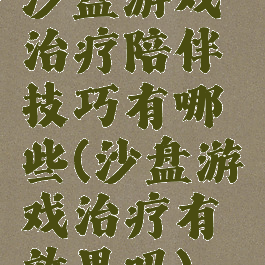 沙盘游戏
治疗陪伴
技巧有哪
些(沙盘游
戏治疗有
效果吗)